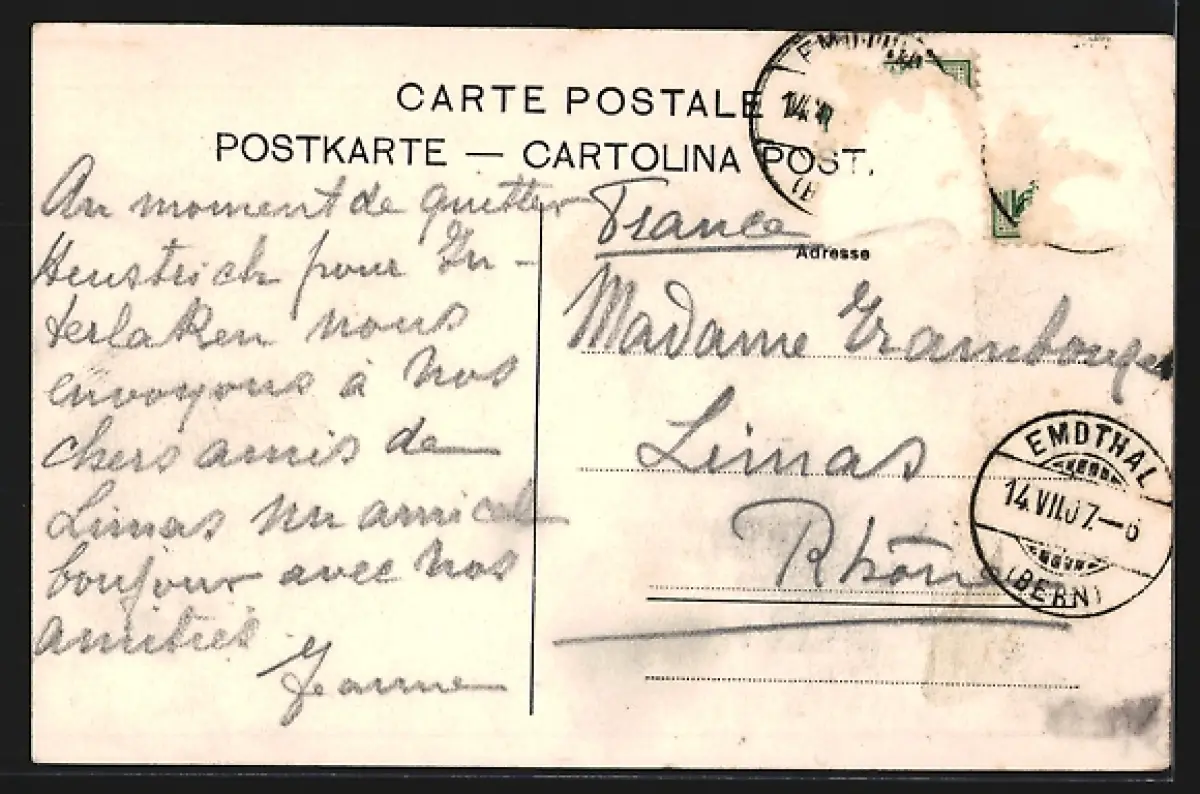 CARTE POSTALE
POSTKARTE — CARTOLINA POST.
Au moment de quitter
Heustrich pour In-
terlaken nous
envoyons à nos
chers amis de
Limas un amical
bonjour avec nos
amitiés
Jeanne
France
Adresse
Madame
Limas
Rhône
EMDTHAL
14.VII.07.—6
(BERN)
14.VII